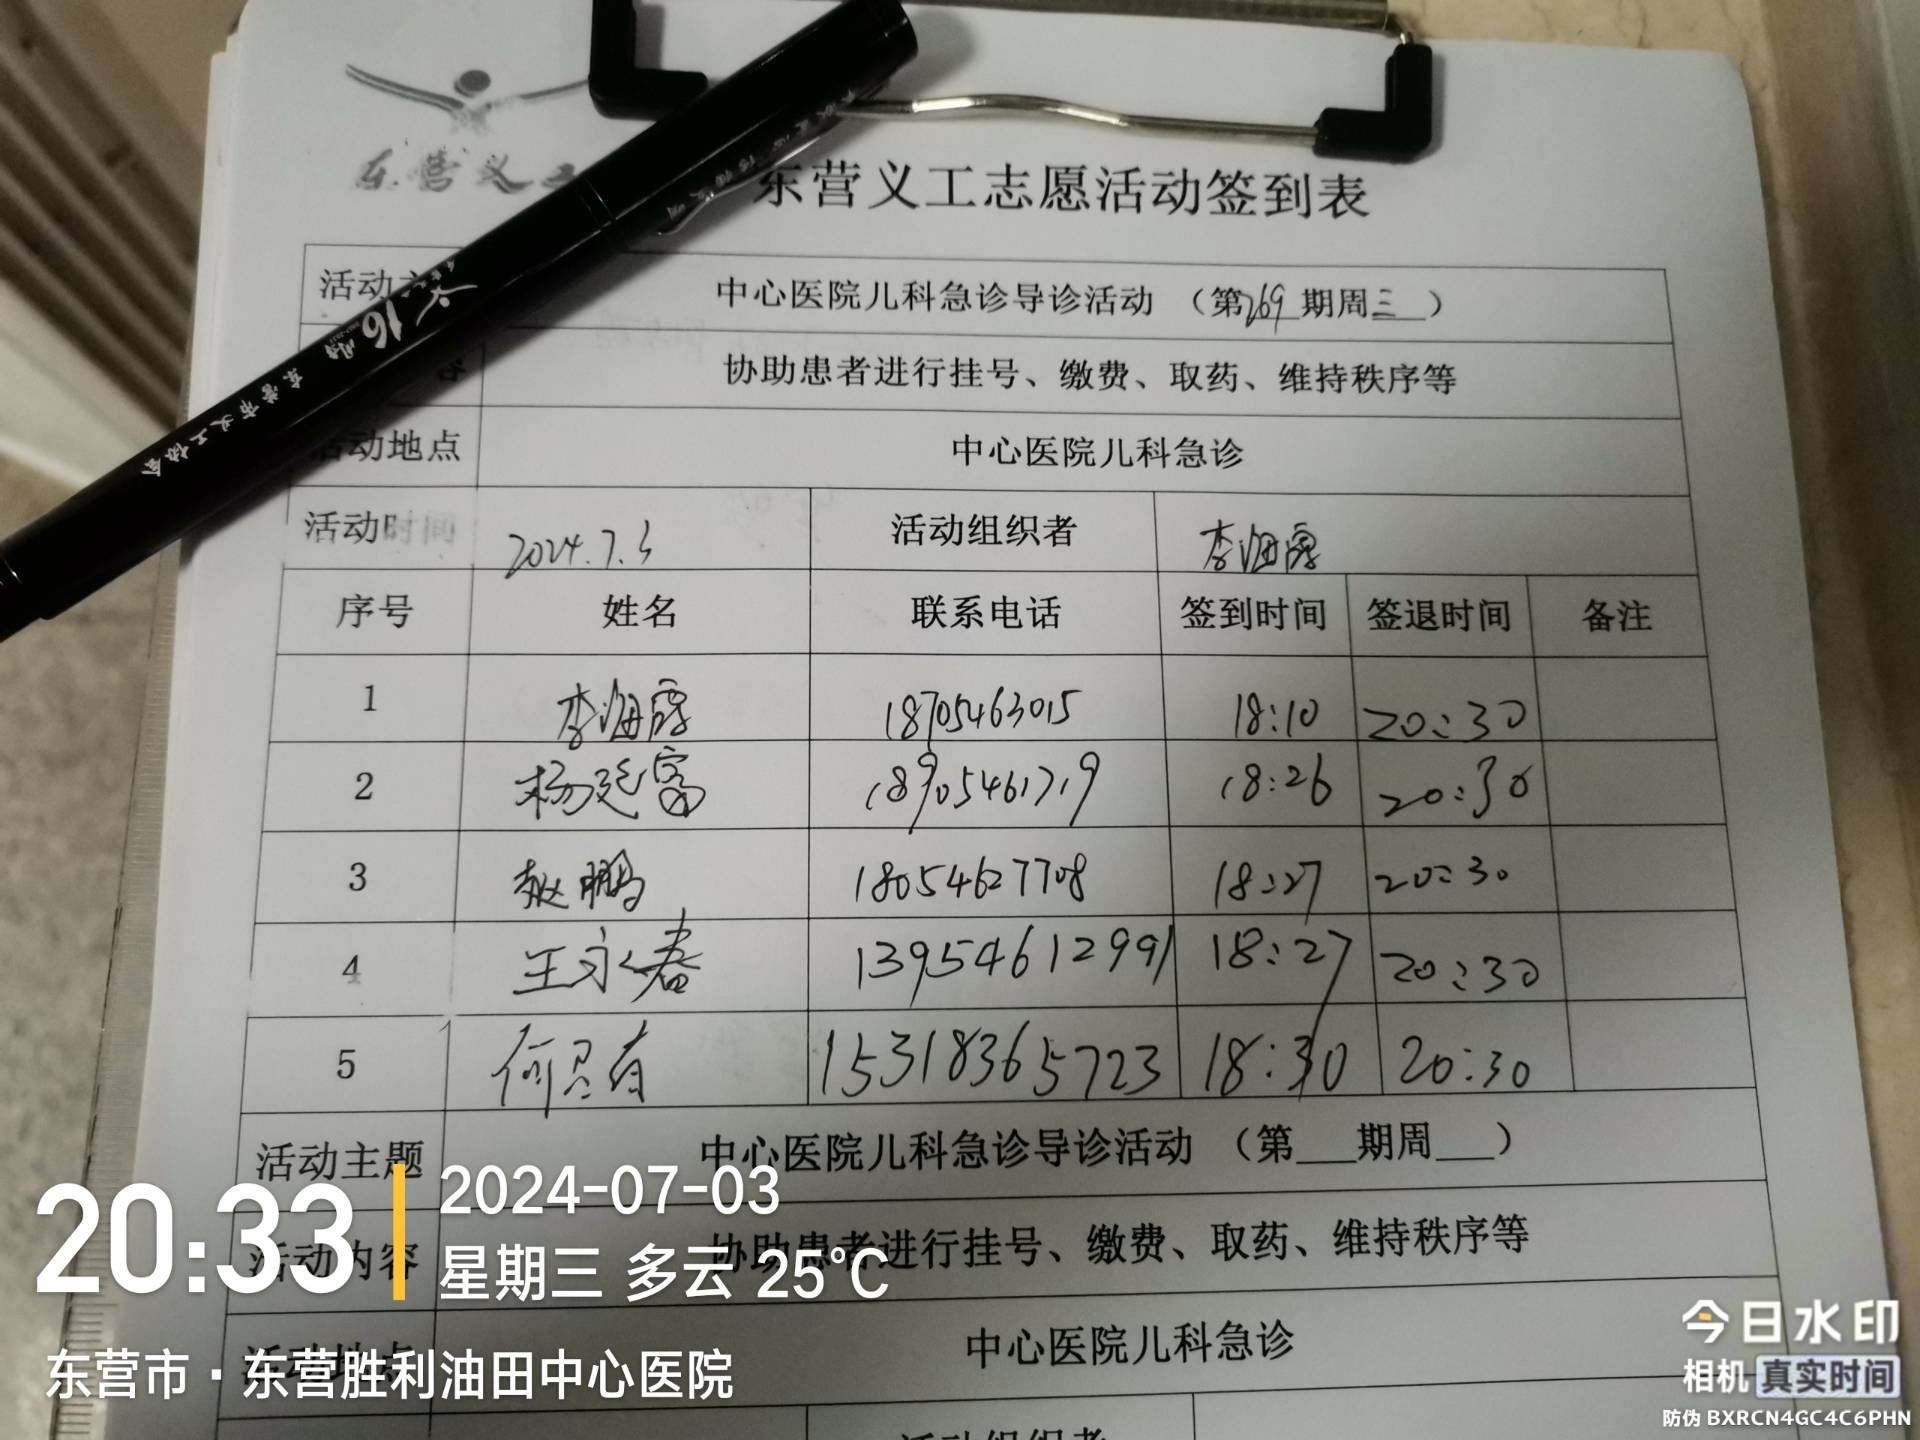 东营义工
东营义工志愿活动签到表
16
东营市义工协会
活动主 中心医院儿科急诊导诊活动 （第269期周三）
容 协助患者进行挂号、缴费、取药、维持秩序等
活动地点 中心医院儿科急诊
活动时间 2024.7.3 活动组织者 李海霞
序号 姓名 联系电话 签到时间 签退时间 备注
1 李海霞 18705463015 18:10 20:30
2 杨延富 18905461719 18:26 20:30
3 赵鹏 18054627708 18:27 20:30
4 王永春 13954612991 18:27 20:30
5 何 15318365723 18:30 20:30
活动主题 中心医院儿科急诊导诊活动 （第___期周___）
活动内容 协助患者进行挂号、缴费、取药、维持秩序等
活动地点 中心医院儿科急诊
活动组织者
20:33
2024-07-03
星期三 多云 25°C
东营市·东营胜利油田中心医院
今日水印
相机 真实时间
防伪 BXRCN4GC4C6PHN